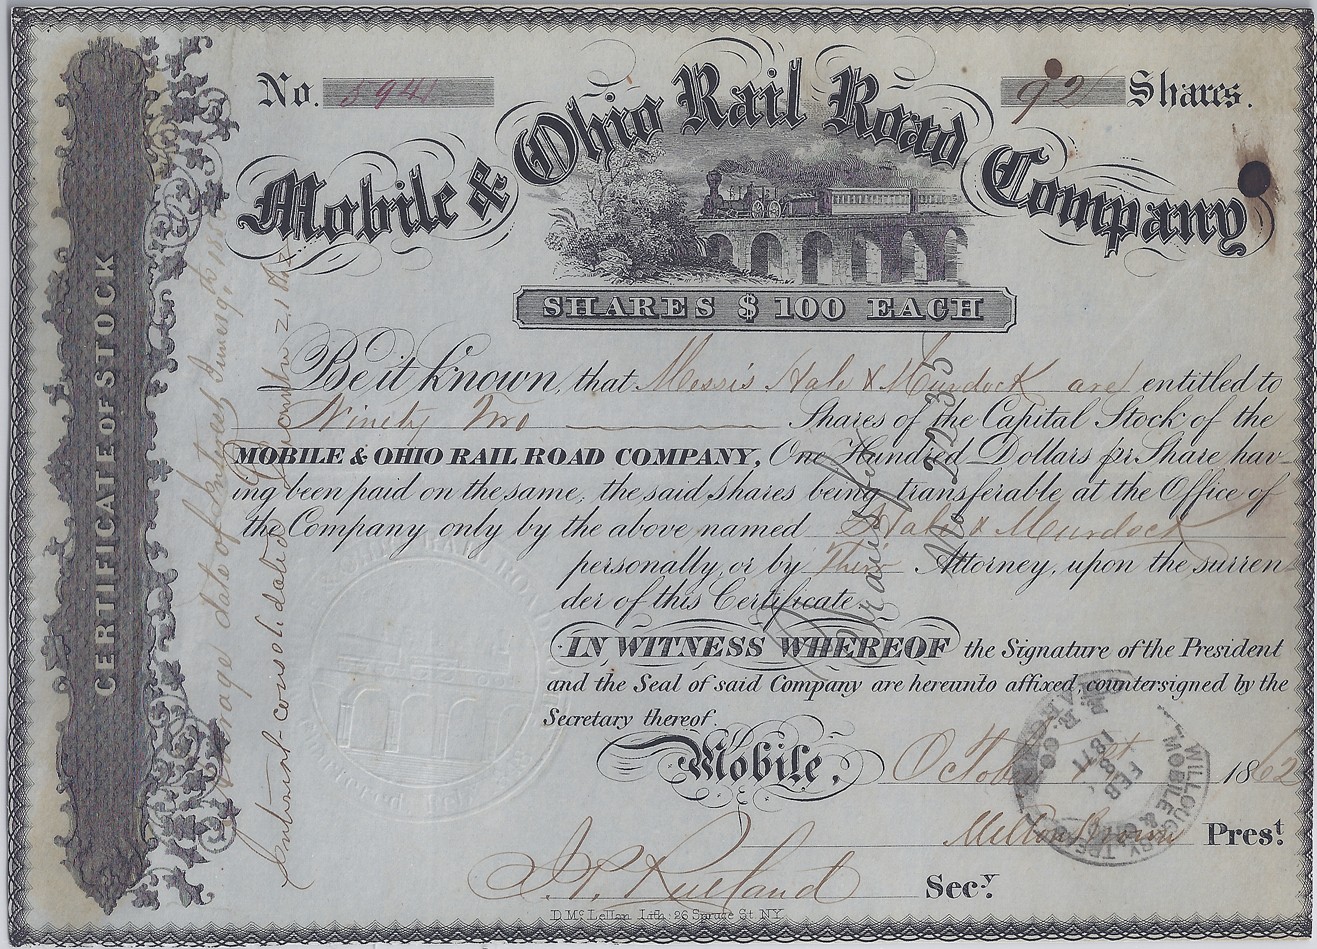 No. 594 92 Shares.
Mobile & Ohio Rail Road Company
SHARES $ 100 EACH
CERTIFICATE OF STOCK
Be it known, that Messrs Hale & Murdock are entitled to
Ninety Two Shares of the Capital Stock of the
MOBILE & OHIO RAIL ROAD COMPANY, One Hundred Dollars pr Share hav-
ing been paid on the same, the said shares being transferable, at the Office of
the Company only by the above named Hale & Murdock
personally, or by Their Attorney, upon the surren-
der of this Certificate.
IN WITNESS WHEREOF the Signature of the President
and the Seal of said Company are hereunto affixed, countersigned by the
Secretary thereof.
Mobile, October 1862
Milton Brown Prest.
Secy.
D. Mc Lellan Lith. 26 Spruce St. N.Y.
Average date of Interest,
Contract consolidated
Transfer
No
R. R. CO.
FEB 8
1871
MOBILE &